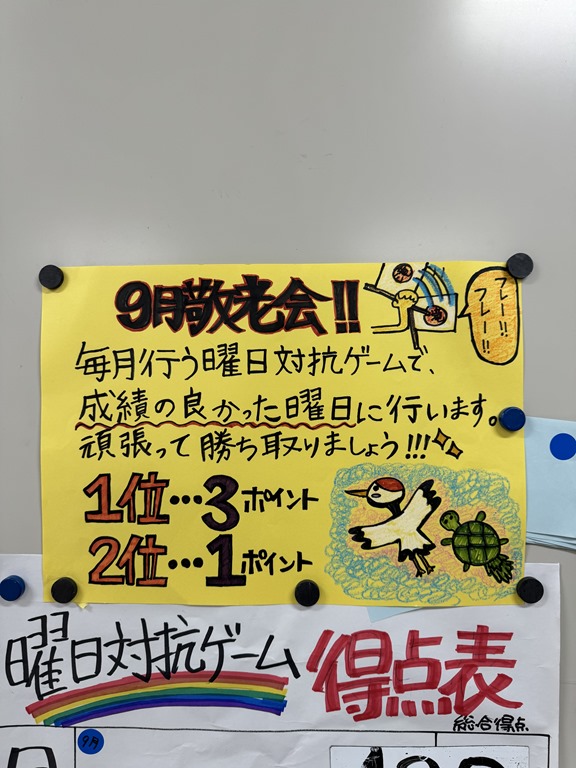 9月敬老会!!
フレー!!
フレー!!
毎月行う曜日対抗ゲームで、
成績の良かった曜日に行います。
頑張って勝ち取りましょう!!!
1位…3ポイント
2位…1ポイント
曜日対抗ゲーム 得点表
総合得点
9月